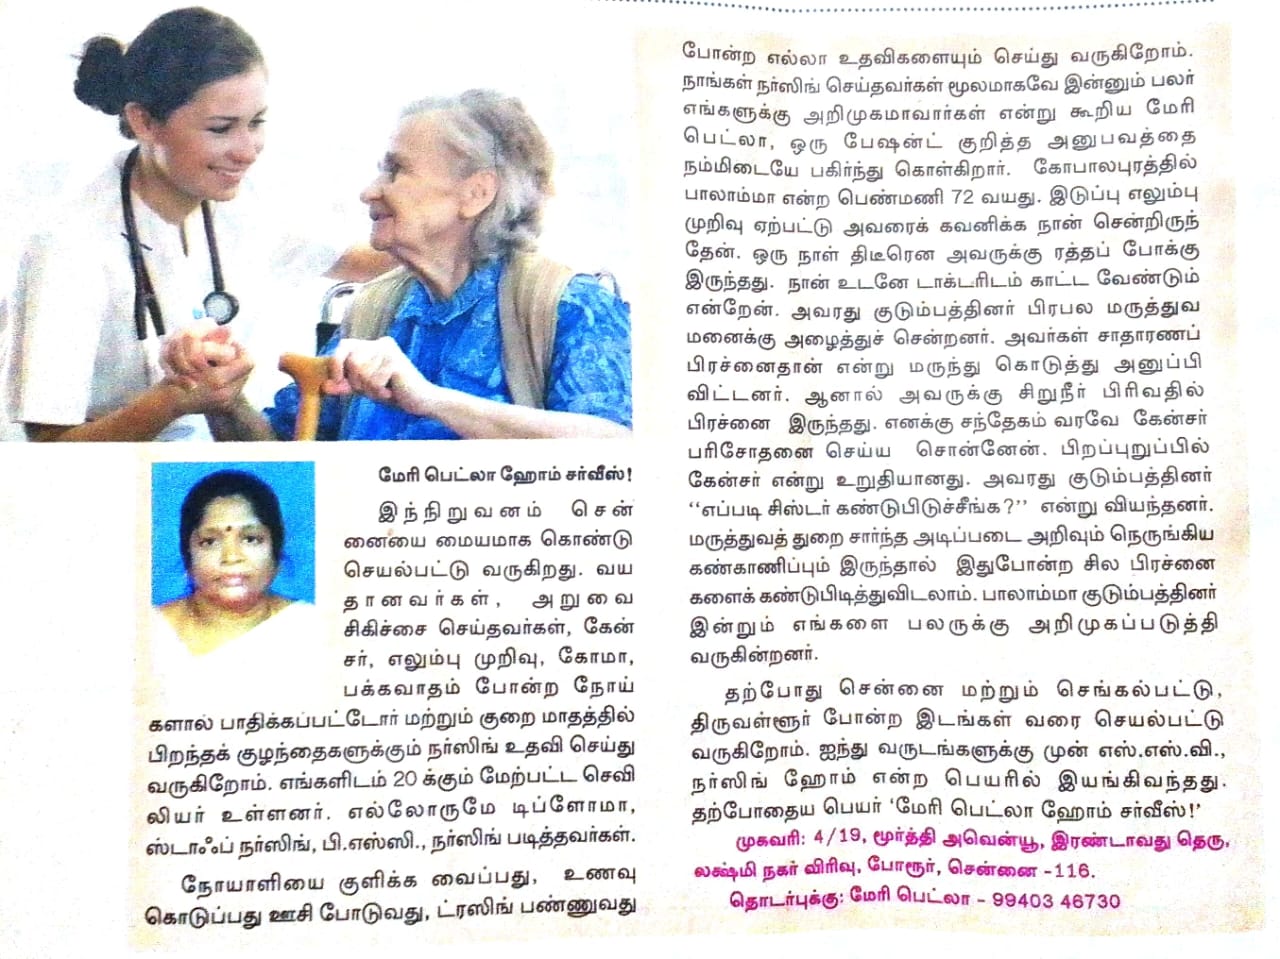 மேரி பெட்லா ஹோம் சர்வீஸ்!
இந்நிறுவனம் சென்
னையை மையமாக கொண்டு
செயல்பட்டு வருகிறது. வய
தானவர்கள், அறுவை
சிகிச்சை செய்தவர்கள், கேன்
சர், எலும்பு முறிவு, கோமா,
பக்கவாதம் போன்ற நோய்
களால் பாதிக்கப்பட்டோர் மற்றும் குறை மாதத்தில்
பிறந்தக் குழந்தைகளுக்கும் நர்ஸிங் உதவி செய்து
வருகிறோம். எங்களிடம் 20 க்கும் மேற்பட்ட செவி
லியர் உள்ளனர். எல்லோருமே டிப்ளோமா,
ஸ்டாஃப் நர்ஸிங், பி.எஸ்ஸி., நர்ஸிங் படித்தவர்கள்.
நோயாளியை குளிக்க வைப்பது, உணவு
கொடுப்பது ஊசி போடுவது, ட்ரஸிங் பண்ணுவது
போன்ற எல்லா உதவிகளையும் செய்து வருகிறோம்.
நாங்கள் நர்ஸிங் செய்தவர்கள் மூலமாகவே இன்னும் பலர்
எங்களுக்கு அறிமுகமாவார்கள் என்று கூறிய மேரி
பெட்லா, ஒரு பேஷன்ட் குறித்த அனுபவத்தை
நம்மிடையே பகிர்ந்து கொள்கிறார். கோபாலபுரத்தில்
பாலாம்மா என்ற பெண்மணி 72 வயது. இடுப்பு எலும்பு
முறிவு ஏற்பட்டு அவரைக் கவனிக்க நான் சென்றிருந்
தேன். ஒரு நாள் திடீரென அவருக்கு ரத்தப் போக்கு
இருந்தது. நான் உடனே டாக்டரிடம் காட்ட வேண்டும்
என்றேன். அவரது குடும்பத்தினர் பிரபல மருத்துவ
மனைக்கு அழைத்துச் சென்றனர். அவர்கள் சாதாரணப்
பிரச்னைதான் என்று மருந்து கொடுத்து அனுப்பி
விட்டனர். ஆனால் அவருக்கு சிறுநீர் பிரிவதில்
பிரச்னை இருந்தது. எனக்கு சந்தேகம் வரவே கேன்சர்
பரிசோதனை செய்ய சொன்னேன். பிறப்புறுப்பில்
கேன்சர் என்று உறுதியானது. அவரது குடும்பத்தினர்
“எப்படி சிஸ்டர் கண்டுபிடுச்சீங்க?” என்று வியந்தனர்.
மருத்துவத் துறை சார்ந்த அடிப்படை அறிவும் நெருங்கிய
கண்காணிப்பும் இருந்தால் இதுபோன்ற சில பிரச்னை
களைக் கண்டுபிடித்துவிடலாம். பாலாம்மா குடும்பத்தினர்
இன்றும் எங்களை பலருக்கு அறிமுகப்படுத்தி
வருகின்றனர்.
தற்போது சென்னை மற்றும் செங்கல்பட்டு,
திருவள்ளூர் போன்ற இடங்கள் வரை செயல்பட்டு
வருகிறோம். ஐந்து வருடங்களுக்கு முன் எஸ்.எஸ்.வி.,
நர்ஸிங் ஹோம் என்ற பெயரில் இயங்கிவந்தது.
தற்போதைய பெயர் ‘மேரி பெட்லா ஹோம் சர்வீஸ்!’
முகவரி: 4/19, மூர்த்தி அவென்யூ, இரண்டாவது தெரு,
லக்ஷ்மி நகர் விரிவு, போரூர், சென்னை -116.
தொடர்புக்கு: மேரி பெட்லா - 99403 46730